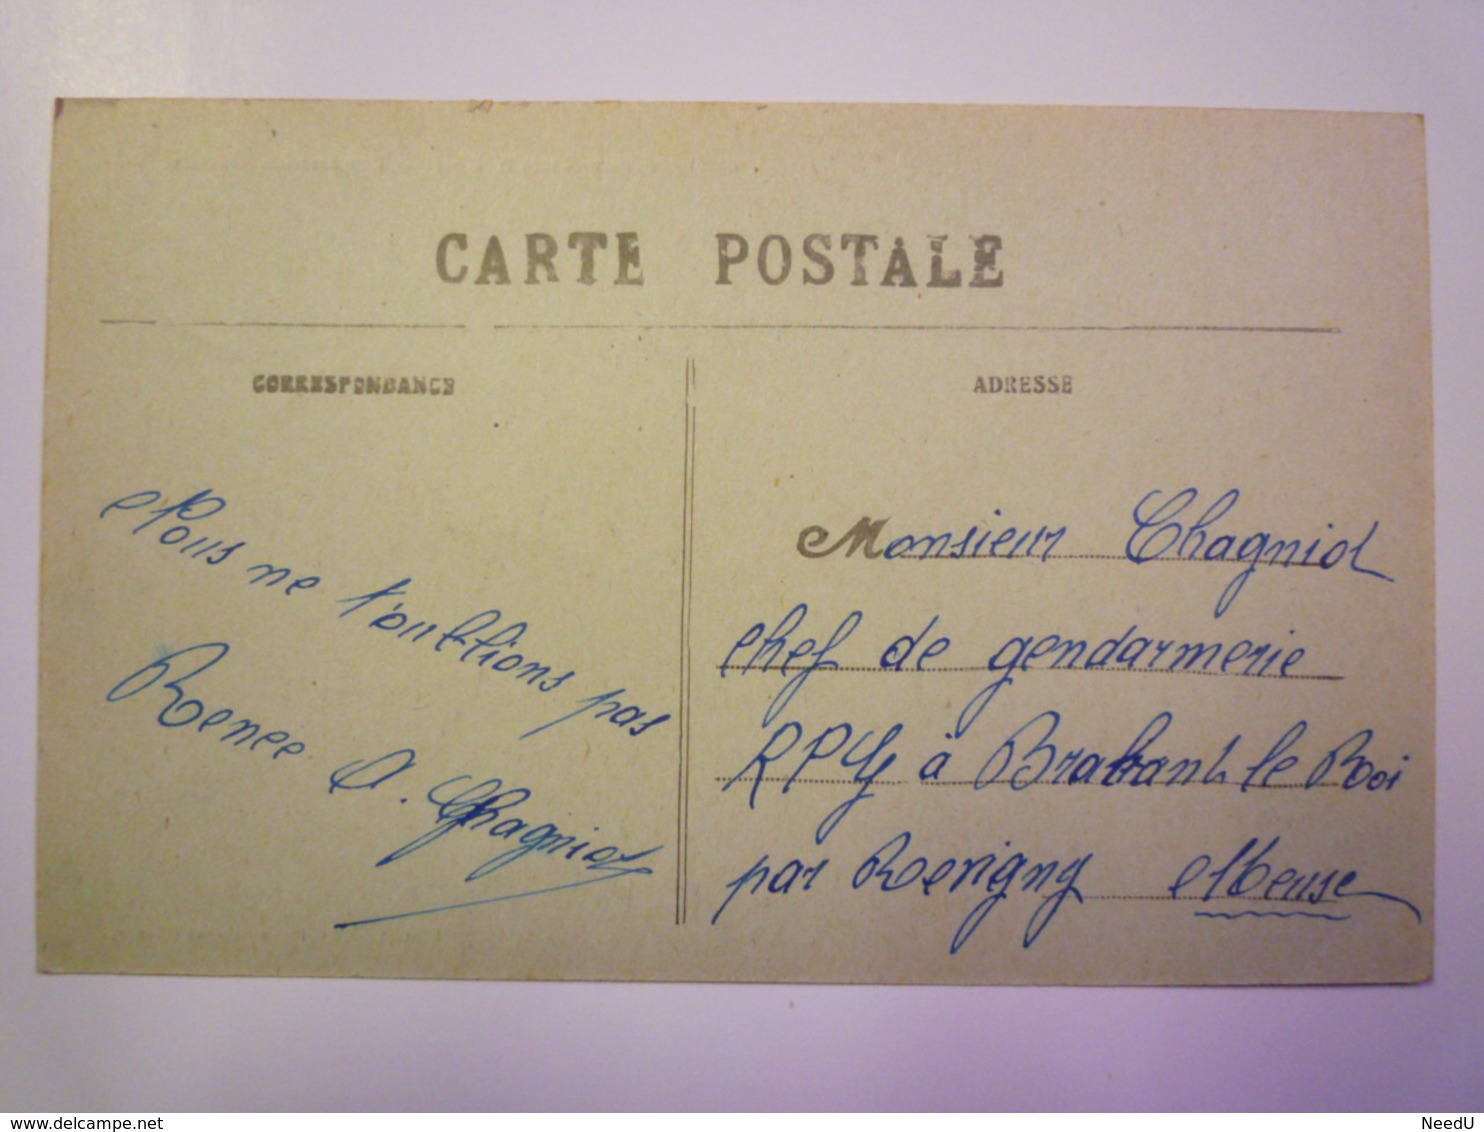 CARTE POSTALE
CORRESPONDANCE
ADRESSE
Nous ne t'oublions pas
Renée A. Chagniot
Monsieur Chagniot
chef de gendarmerie
à Brabant le Roi
par Revigny Meuse
www.delcampe.net
NeedU